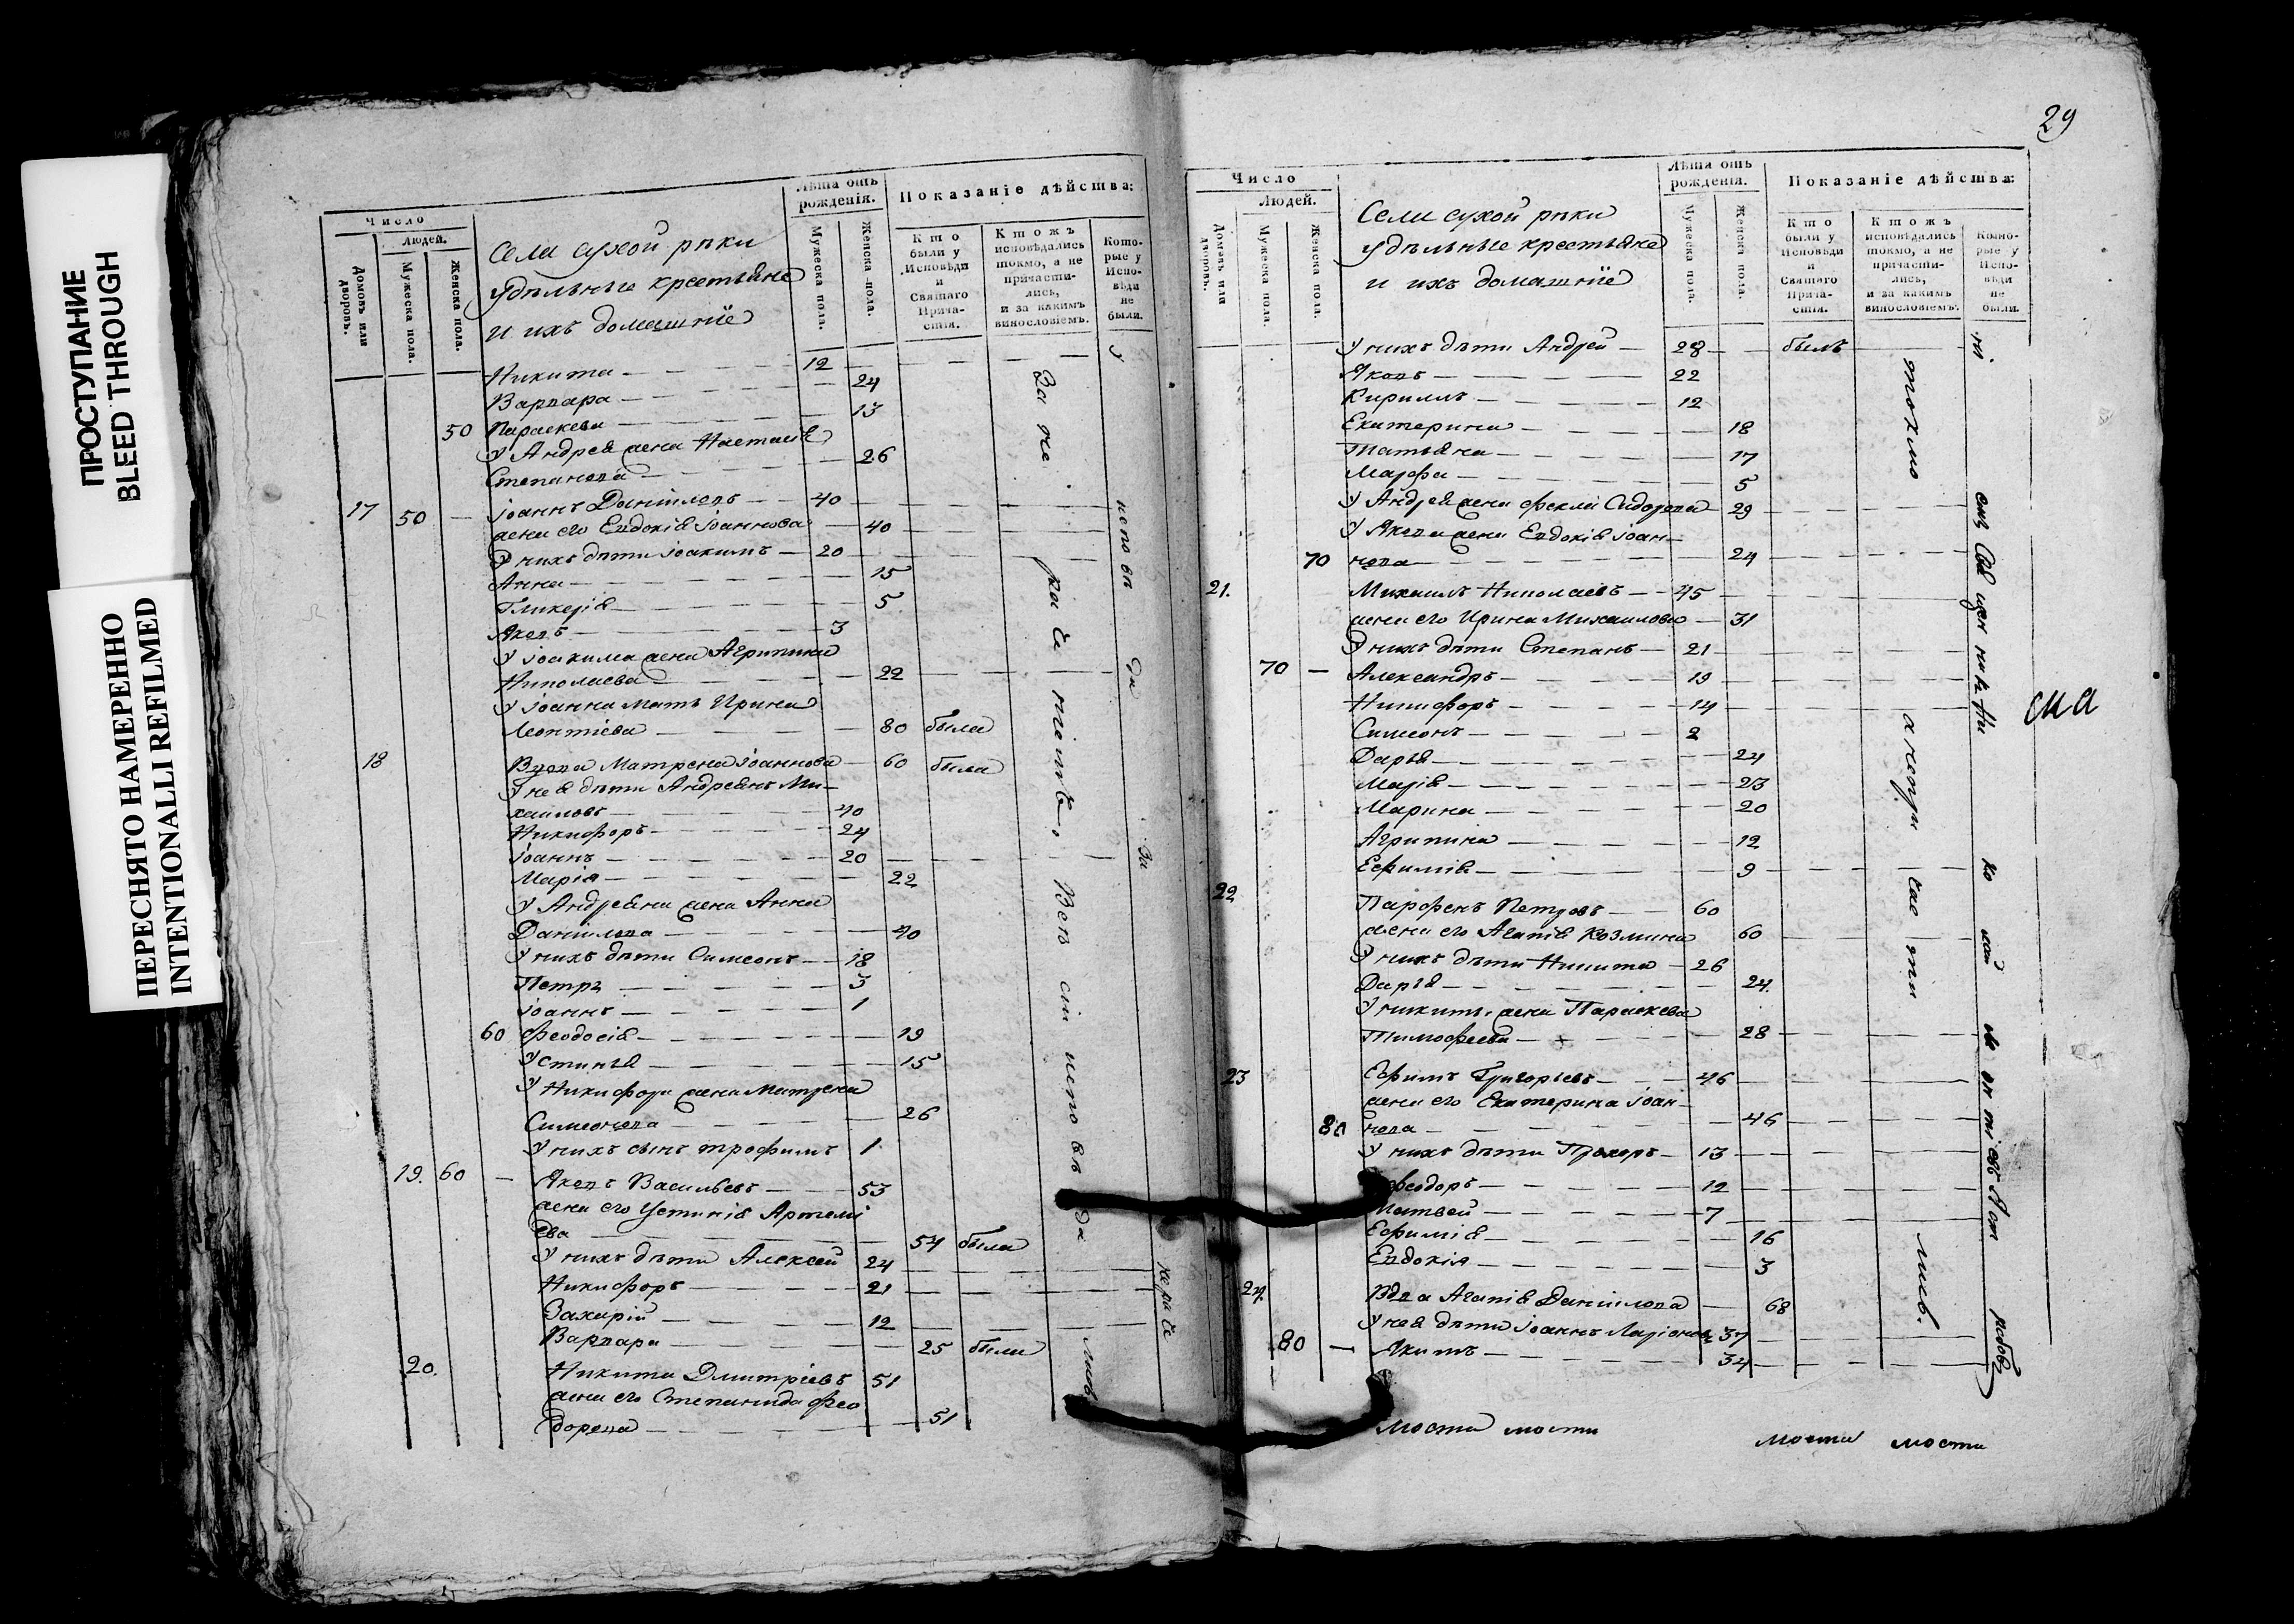 ПРОСТУПАНИЕ
BLEED THROUGH
ПЕРЕСНЯТО НАМЕРЕННО
INTENTIONALLI REFILMED
Число
Людей.
Домовъ или дворовъ.
Мужеска пола.
Женска пола.
Села сухой рѣки
удѣльные крестьяне
и ихъ домашніе
Лѣта отъ рожденія.
Мужеска пола.
Женска пола.
Показаніе дѣйства:
Кто были у Исповѣди и Святаго Прича-стія.
Ктожъ исповѣдались токмо, а не причасти-лись, и за какимъ винословіемъ.
Кото-рые у Испо-вѣди не были.
Никита 12
Варвара 24
50 Параскева 13
У Андрея жена Настасія
Степанова 26
17 50 — Іоаннъ Даніиловъ 40
жена его Евдокія Іоаннова 40
У нихъ дѣти Іоакимъ 20
Анна 15
Гликерія 5
Яковъ 3
У Іоакима жена Агрипина
Николаева 22
У Іоанна мать Ирина
Леонтіева 80 была
18 Вдова Матрена Іоаннова 60 была
У нея дѣти Андреянъ Ми-
хаиловъ 40
Никифоръ 24
Іоаннъ 20
Марія 22
У Андреяна жена Анна
Даніилова 40
У нихъ дѣти Симеонъ 18
Петръ 3
Іоаннъ 1
60 Феодосія 19
Устинья 15
У Никифора жена Матрена
Симеонова 26
У нихъ сынъ Трофимъ 1
19. 60 — Яковъ Васильевъ 53
жена его Устинія Артемі
ева 54 была
У нихъ дѣти Алексей 24
Никифоръ 21
Захарій 12
Варвара 25 была
20. Никита Дмитріевъ 51
жена его Степанида Фео
дорова 51
За не ра че ніемъ. Всѣ сіи испо вѣ да лись
у испо вѣ ди за нера че
29
Число
Людей.
Домовъ или дворовъ.
Мужеска пола.
Женска пола.
Села сухой рѣки
удѣльные крестьяне
и ихъ домашніе
Лѣта отъ рожденія.
Мужеска пола.
Женска пола.
Показаніе дѣйства:
Кто были у Исповѣди и Святаго Прича-стія.
Ктожъ исповѣдались токмо, а не причасти-лись, и за какимъ винословіемъ.
Кото-рые у Испо-вѣди не были.
У нихъ дѣти Андрей 28 былъ
Яковъ 22
Кириллъ 12
Екатерина 18
Татьяна 17
Марфа 5
У Андрея жена Фекла Сидорова 29
У Якова жена Евдокія Іоан-
70 нова 24
21. Михаилъ Николаевъ 45
жена его Ирина Михаилова 31
У нихъ дѣти Степанъ 21
70 — Александръ 19
Никифоръ 14
Симеонъ 2
Дарья 24
Марія 23
Марина 20
Агрипина 12
Ефимія 9
22 Парфенъ Петровъ 60
жена его Агапія Козмина 60
У нихъ дѣти Никита 26
Дарья 24.
У Никиты жена Параскева
Тимофеева 28
23 Ефимъ Григорьевъ 46
жена его Екатерина Іоан-
80 нова 46
У нихъ дѣти Прохоръ 13
Феодоръ 12
Матвей 7
Ефимія 16
Евдокія 3
24. Вдова Агапія Даніилова 68
У нея дѣти Іоаннъ Ларіоновъ 37
80 — Якимъ 34
токмо а непри час ти лись.
Свя щен никъ Ни ко лай Ле он ті евъ
сма
мости мости
мости мости